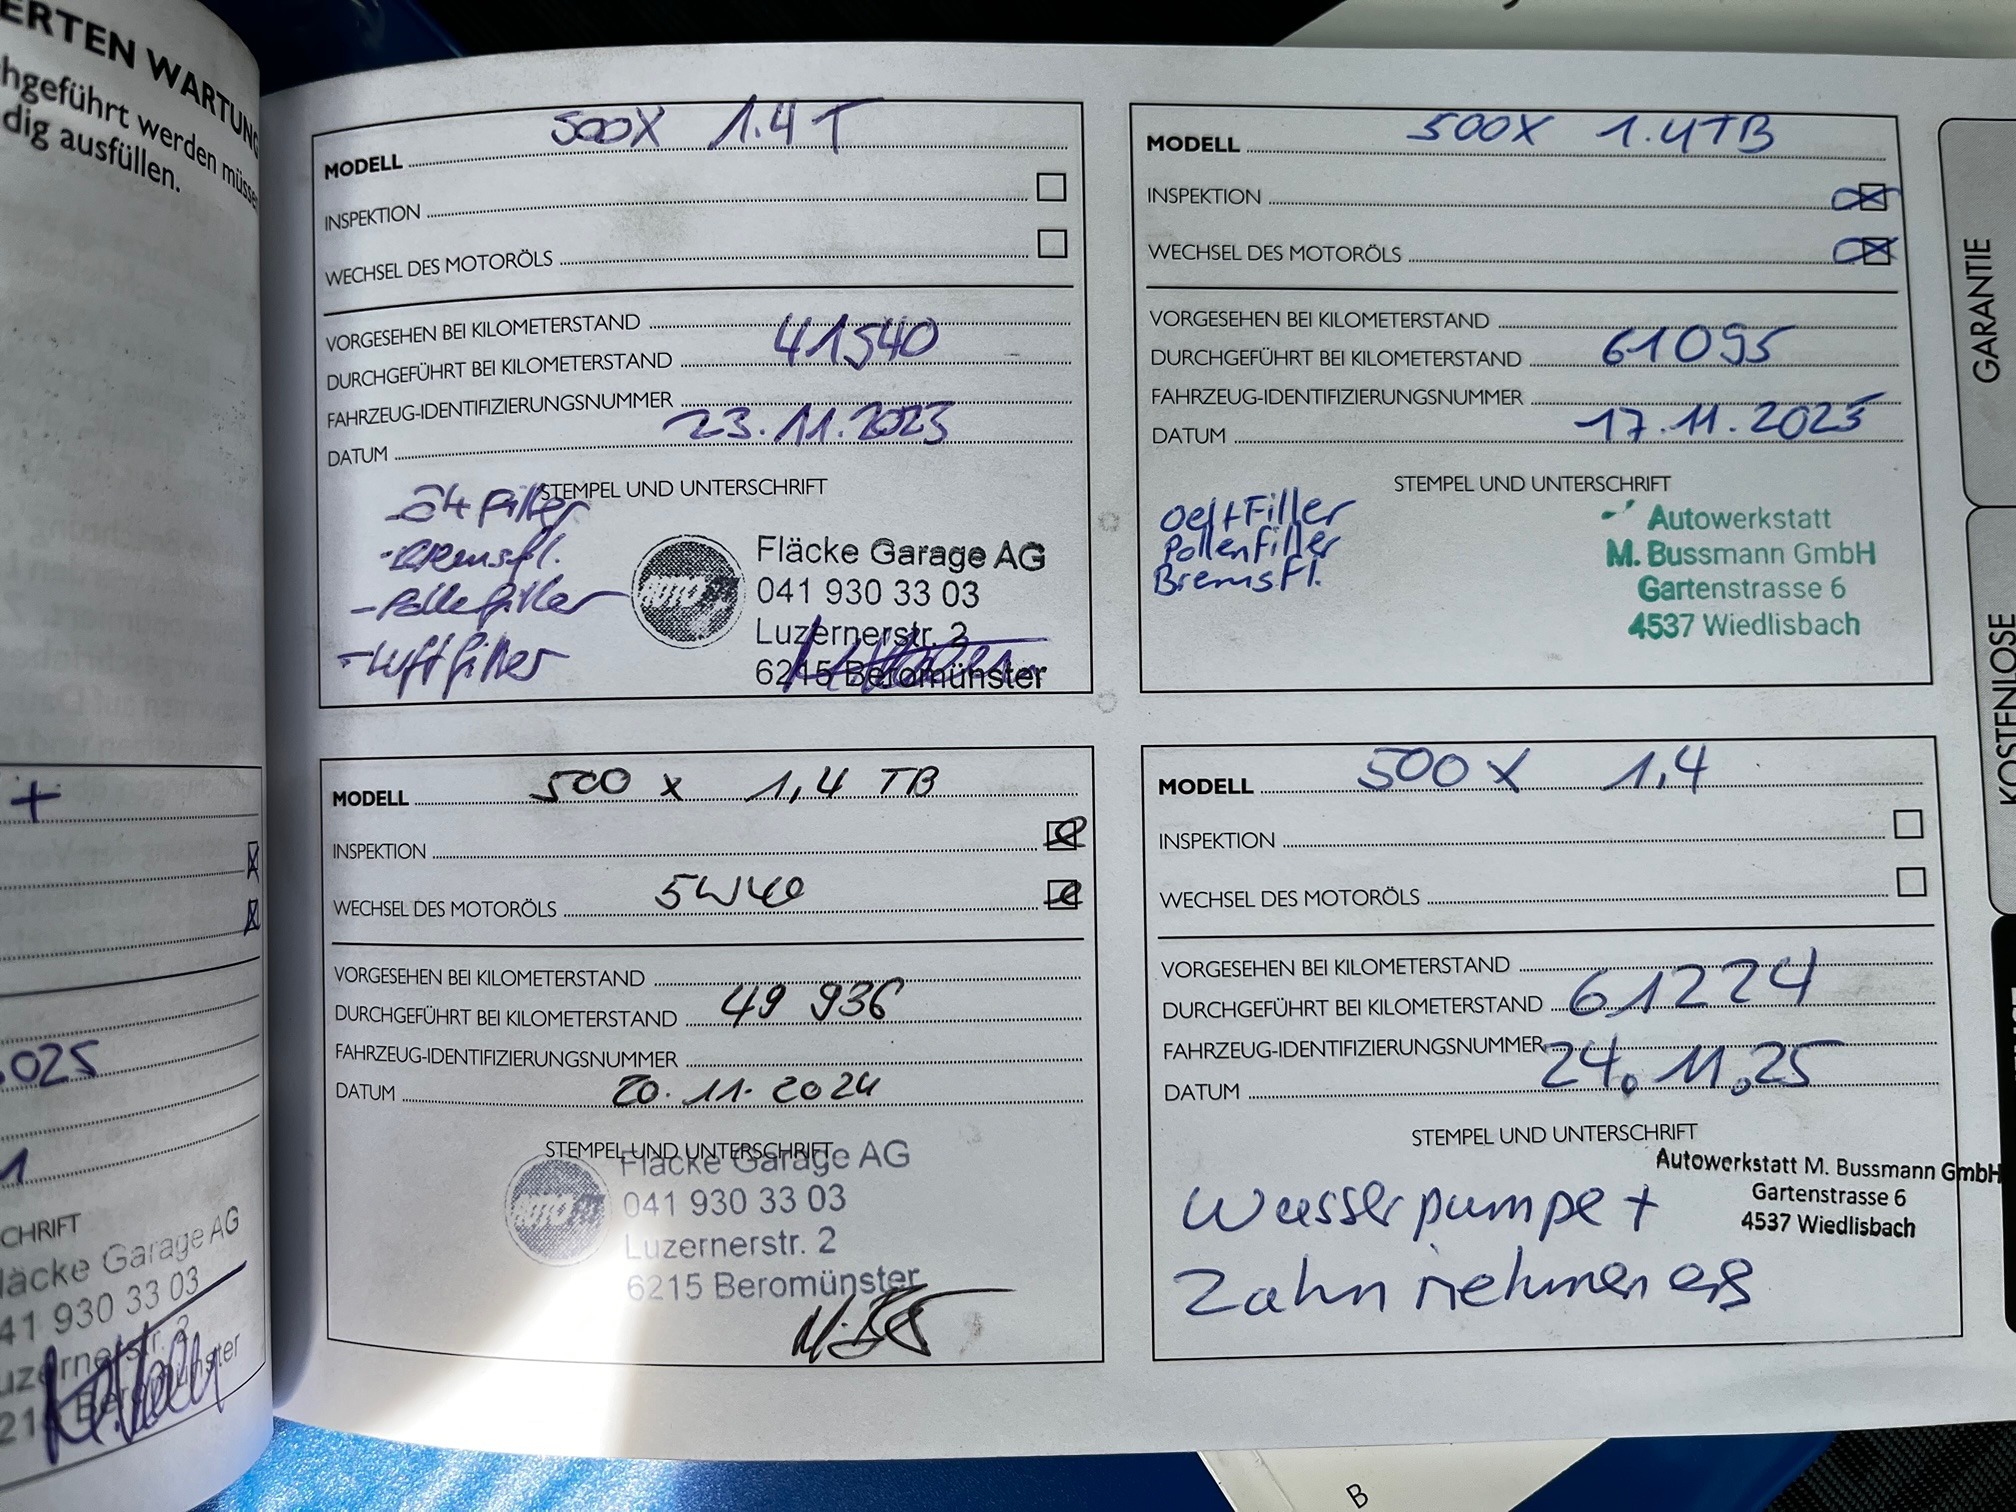 ERTEN WARTUNG
hgeführt werden müsse
dig ausfüllen.
+
025
1
CHRIFT
läcke Garage AG
41 930 33 03
MODELL 500X 1.4 T
INSPEKTION
WECHSEL DES MOTORÖLS
VORGESEHEN BEI KILOMETERSTAND
DURCHGEFÜHRT BEI KILOMETERSTAND 41540
FAHRZEUG-IDENTIFIZIERUNGSNUMMER
DATUM 23.11.2023
STEMPEL UND UNTERSCHRIFT
-Öl+Filter
-Bremsfl.
-Pollefilter
-Luftfilter
Fläcke Garage AG
041 930 33 03
Luzernerstr. 2
6215 Beromünster
MODELL 500X 1.4TB
INSPEKTION
WECHSEL DES MOTORÖLS
VORGESEHEN BEI KILOMETERSTAND
DURCHGEFÜHRT BEI KILOMETERSTAND 61095
FAHRZEUG-IDENTIFIZIERUNGSNUMMER
DATUM 17.11.2025
STEMPEL UND UNTERSCHRIFT
Oel+Filler
Pollenfiller
Bremsfl.
Autowerkstatt
M. Bussmann GmbH
Gartenstrasse 6
4537 Wiedlisbach
MODELL 500 x 1,4 TB
INSPEKTION
WECHSEL DES MOTORÖLS 5W40
VORGESEHEN BEI KILOMETERSTAND
DURCHGEFÜHRT BEI KILOMETERSTAND 49 936
FAHRZEUG-IDENTIFIZIERUNGSNUMMER
DATUM 20.11.2024
STEMPEL UND UNTERSCHRIFT
Fläcke Garage AG
041 930 33 03
Luzernerstr. 2
6215 Beromünster
MODELL 500 X 1,4
INSPEKTION
WECHSEL DES MOTORÖLS
VORGESEHEN BEI KILOMETERSTAND
DURCHGEFÜHRT BEI KILOMETERSTAND 61224
FAHRZEUG-IDENTIFIZIERUNGSNUMMER
DATUM 24.11.25
STEMPEL UND UNTERSCHRIFT
Autowerkstatt M. Bussmann GmbH
Gartenstrasse 6
4537 Wiedlisbach
Wasserpumpe +
Zahnriehmen ers
GARANTIE
KOSTENLOSE
B